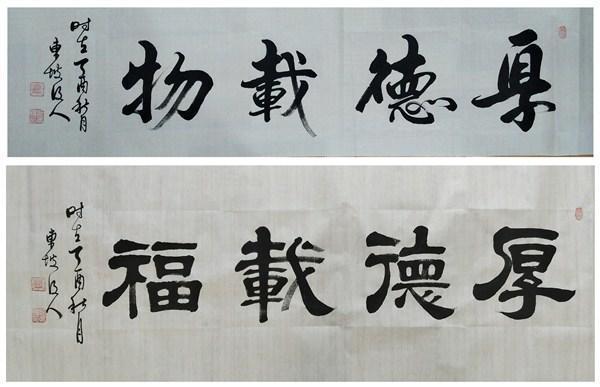 厚德載物
时在丁酉秋月
東坡後人
厚德載福
时在丁酉秋月
東坡後人